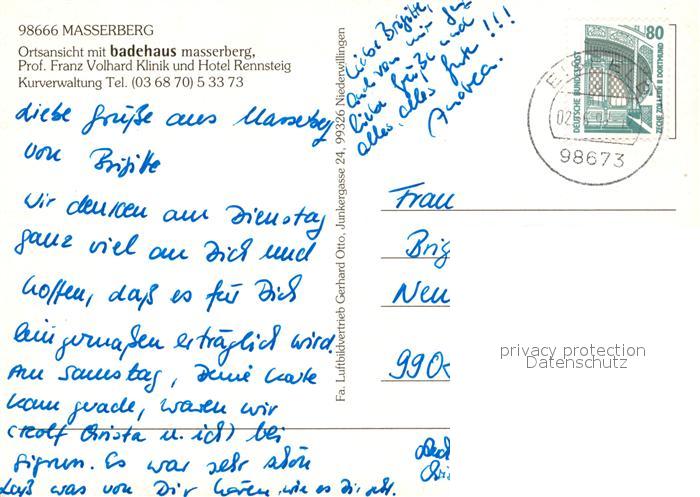 98666 MASSERBERG
Ortsansicht mit badehaus masserberg,
Prof. Franz Volhard Klinik und Hotel Rennsteig
Kurverwaltung Tel. (03 68 70) 5 33 73
Liebe Grüße aus Masserberg
von Brigitte
Wir denken am Dienstag
ganz viel an Dich und
hoffen, daß es für Dich
einigermaßen erträglich wird.
Am Samstag, Deine Karte
kam gerade, waren wir
(Rolf Christa u. ich) bei
. Es war sehr schön
daß was von Dir hören, wie es Dir
Fa. Luftbildvertrieb Gerhard Otto, Junkergasse 24, 99326 Niederwillingen
Liebe Brigitte,
auch von mir ganz
liebe Grüße und
alles, alles Gute !!!
Andrea.
80
DEUTSCHE BUNDESPOST
ZECHE ZOLLERN II DORTMUND
98673
Frau
Brig
Neu
990
privacy protection
Datenschutz